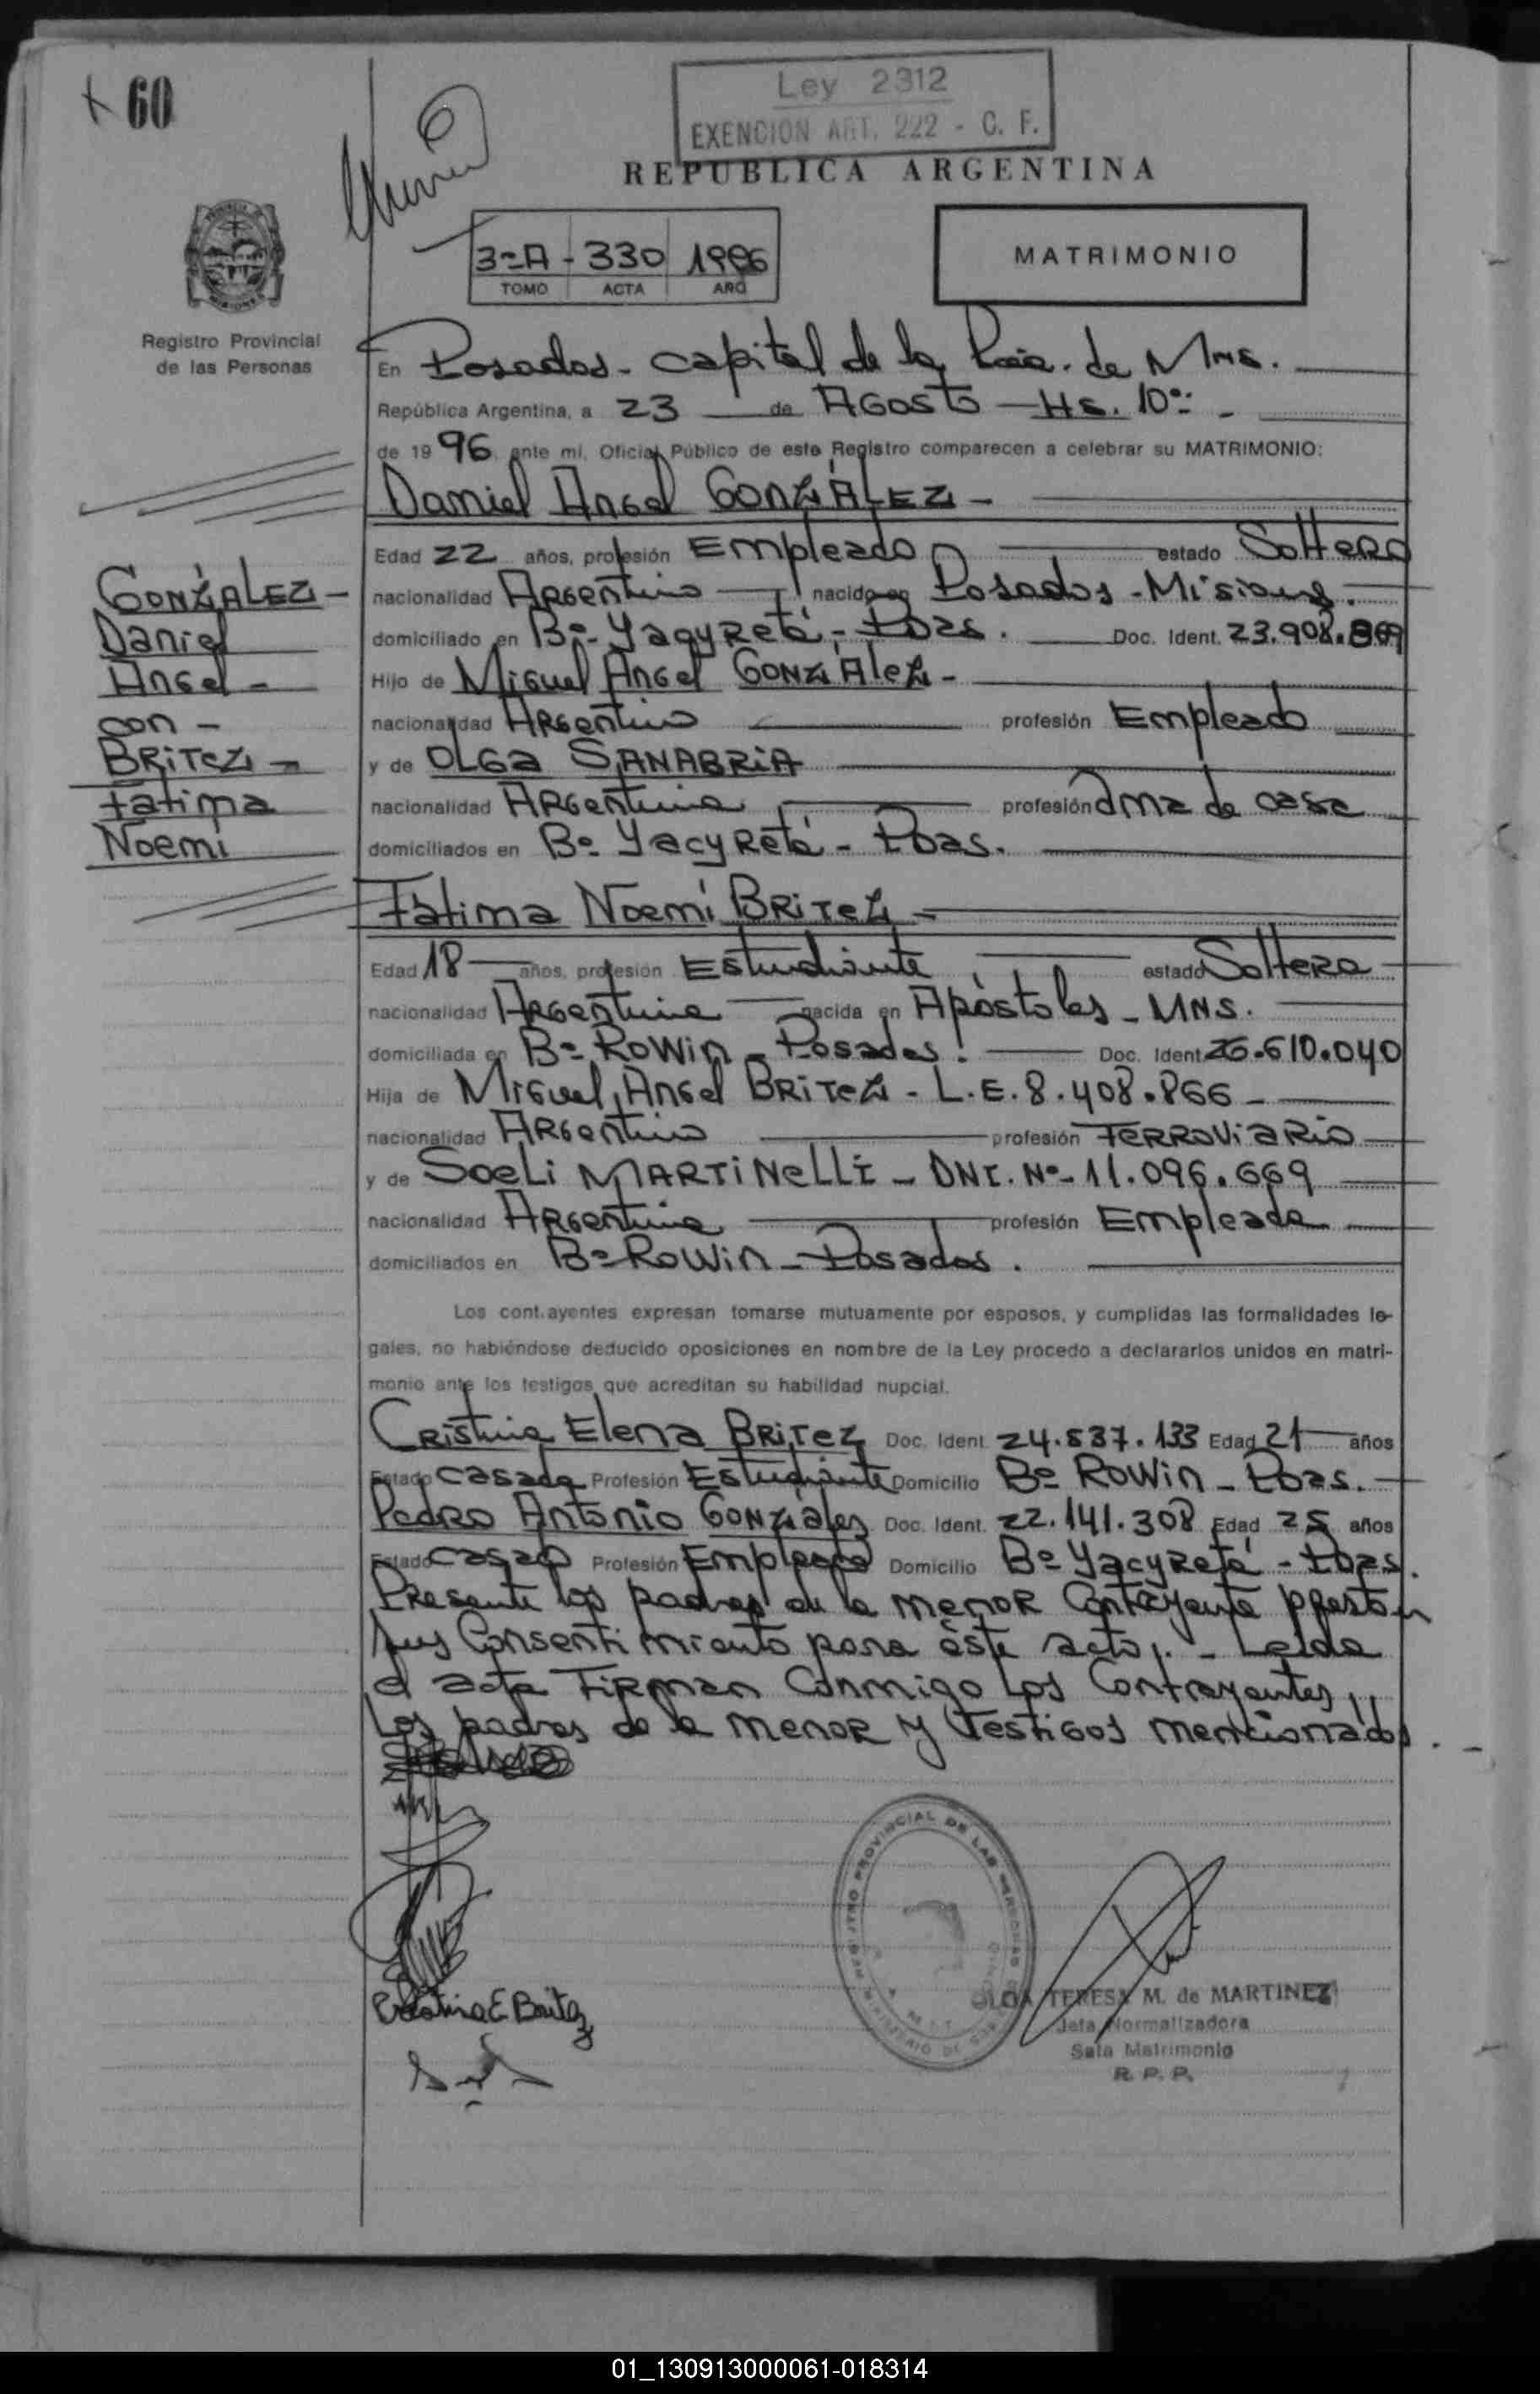 60
Ley 2312
EXENCION ART. 222 - C. F.
REPUBLICA ARGENTINA
3=A - 330 1996
TOMO ACTA AÑO
MATRIMONIO
Registro Provincial
de las Personas
En Posadas - capital de la Pcia. de Mns.
República Argentina, a 23 de Agosto - Hs. 10:
de 1996 ante mí, Oficial Público de este Registro comparecen a celebrar su MATRIMONIO:
Daniel Angel GONZÁLEZ -
Edad 22 años, profesión Empleado estado Soltero
nacionalidad Argentino nacido en Posadas - Misiones.
domiciliado en Bº Yacyretá - Pdas. Doc. Ident. 23.908.869
Hijo de Miguel Angel GONZÁleZ -
nacionalidad Argentino profesión Empleado
y de OLGA SANABRIA
nacionalidad Argentina profesión ama de casa
domiciliados en Bº Yacyretá - Pdas.
GONZÁLEZ -
Daniel
Angel -
con -
BRITEZ -
Fatima
Noemi
Fátima Noemí BRITEZ -
Edad 18 años, profesión Estudiante estado Soltera
nacionalidad Argentina nacida en Apóstoles - MNS.
domiciliada en Bº Rowin - Posadas. Doc. Ident. 26.610.040
Hija de Miguel Angel BRITEZ - L.E. 8.408.866 -
nacionalidad Argentino profesión FERROVIARIO
y de Soeli MARTINELLI - DNI. Nº - 11.096.669
nacionalidad Argentina profesión Empleada
domiciliados en Bº Rowin - Posadas.
Los contrayentes expresan tomarse mutuamente por esposos, y cumplidas las formalidades le-
gales, no habiéndose deducido oposiciones en nombre de la Ley procedo a declararlos unidos en matri-
monio ante los testigos que acreditan su habilidad nupcial.
Cristina Elena BRITEZ Doc. Ident. 24.537.133 Edad 21 años
Estado casada Profesión Estudiante Domicilio Bº Rowin - Pdas.
Pedro Antonio GONZÁlez Doc. Ident. 22.141.308 Edad 25 años
Estado casado Profesión Empleado Domicilio Bº Yacyretá - Pdas.
Presente los padres de la menor Contrayente prestan
sus Consentimiento para éste acto. - Leída
el acta Firman Conmigo los Contrayentes,
los padres de la menor y Testigos mencionados. -
Cristina E Britez
REGISTRO PROVINCIAL DE LAS PERSONAS
TERESA M. de MARTINEZ
Jefa Normalizadora
Sala Matrimonio
R. P. P.
01_130913000061-018314